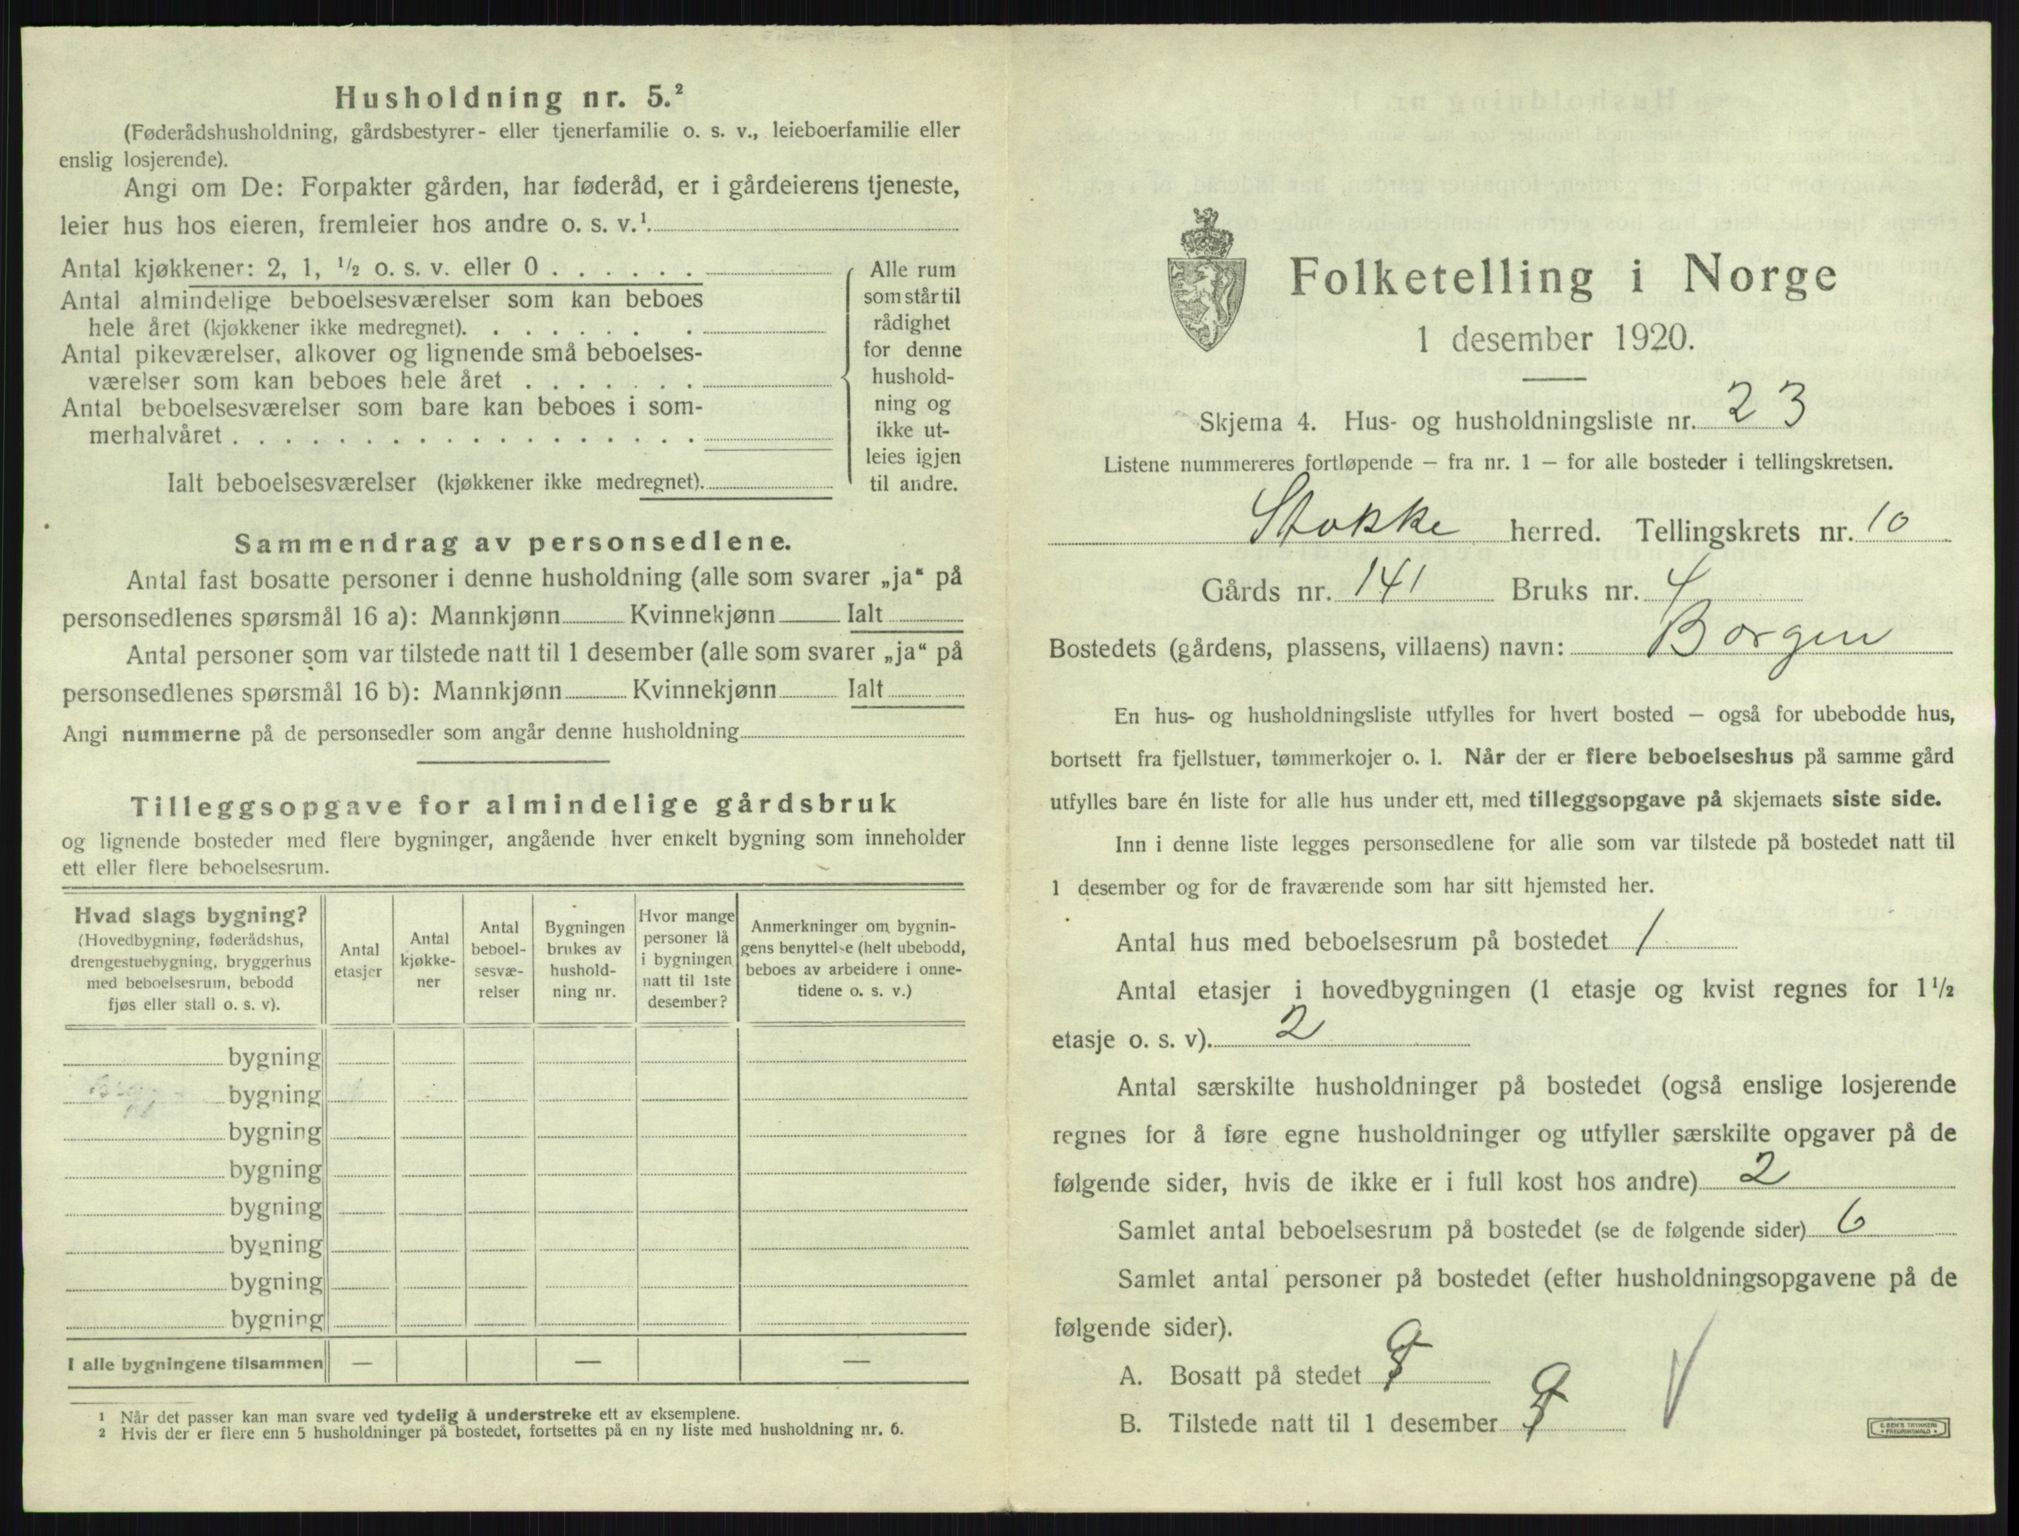 Husholdning nr. 5.²
(Føderådshusholdning, gårdsbestyrer- eller tjenerfamilie o. s. v., leieboerfamilie eller
enslig losjerende).
Angi om De: Forpakter gården, har føderåd, er i gårdeierens tjeneste,
leier hus hos eieren, fremleier hos andre o. s. v.¹
Antal kjøkkener: 2, 1, ½ o. s. v. eller 0 . . . . . .
Antal almindelige beboelsesværelser som kan beboes
hele året (kjøkkener ikke medregnet). . . . . . . .
Antal pikeværelser, alkover og lignende små beboelses-
værelser som kan beboes hele året . . . . . . .
Antal beboelsesværelser som bare kan beboes i som-
merhalvåret . . . . . . . . . . . . . . . . . .
Ialt beboelsesværelser (kjøkkener ikke medregnet).
Alle rum
som står til
rådighet
for denne
hushold-
ning og
ikke ut-
leies igjen
til andre.
Sammendrag av personsedlene.
Antal fast bosatte personer i denne husholdning (alle som svarer „ja“ på
personsedlenes spørsmål 16 a): Mannkjønn Kvinnekjønn Ialt
Antal personer som var tilstede natt til 1 desember (alle som svarer „ja“ på
personsedlenes spørsmål 16 b): Mannkjønn Kvinnekjønn Ialt
Angi nummerne på de personsedler som angår denne husholdning
Tilleggsopgave for almindelige gårdsbruk
og lignende bosteder med flere bygninger, angående hver enkelt bygning som inneholder
ett eller flere beboelsesrum.
Hvad slags bygning?
(Hovedbygning, føderådshus,
drengestuebygning, bryggerhus
med beboelsesrum, bebodd
fjøs eller stall o. s. v).
Antal
etasjer
Antal
kjøkke-
ner
Antal
beboel-
sesvæ-
relser
Bygningen
brukes av
hushold-
ning nr.
Hvor mange
personer lå
i bygningen
natt til 1ste
desember?
Anmerkninger om bygnin-
gens benyttelse (helt ubebodd,
beboes av arbeidere i onne-
tidene o. s. v.)
bygning
bygning
bygning
bygning
bygning
bygning
bygning
bygning
I alle bygningene tilsammen — — —
¹ Når det passer kan man svare ved tydelig å understreke ett av eksemplene.
² Hvis der er flere enn 5 husholdninger på bostedet, fortsettes på en ny liste med husholdning nr. 6.
Folketelling i Norge
1 desember 1920.
Skjema 4. Hus- og husholdningsliste nr. 23
Listene nummereres fortløpende — fra nr. 1 — for alle bosteder i tellingskretsen.
Stokke herred. Tellingskrets nr. 10
Gårds nr. 141 Bruks nr. 4
Bostedets (gårdens, plassens, villaens) navn: Borgen
En hus- og husholdningsliste utfylles for hvert bosted — også for ubebodde hus,
bortsett fra fjellstuer, tømmerkojer o. l. Når der er flere beboelseshus på samme gård
utfylles bare én liste for alle hus under ett, med tilleggsopgave på skjemaets siste side.
Inn i denne liste legges personsedlene for alle som var tilstede på bostedet natt til
1 desember og for de fraværende som har sitt hjemsted her.
Antal hus med beboelsesrum på bostedet 1
Antal etasjer i hovedbygningen (1 etasje og kvist regnes for 1½
etasje o. s. v). 2
Antal særskilte husholdninger på bostedet (også enslige losjerende
regnes for å føre egne husholdninger og utfyller særskilte opgaver på de
følgende sider, hvis de ikke er i full kost hos andre) 2
Samlet antal beboelsesrum på bostedet (se de følgende sider) 6
Samlet antal personer på bostedet (efter husholdningsopgavene på de
følgende sider).
A. Bosatt på stedet 9
B. Tilstede natt til 1 desember 9